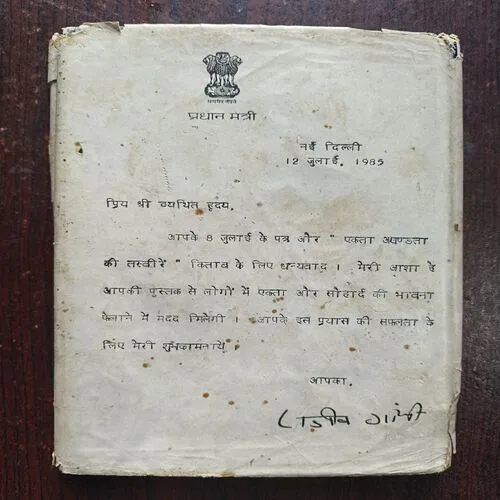 सत्यमेव जयते
प्रधान मंत्री
नई दिल्ली
12 जुलाई, 1985
प्रिय श्री व्यथित हृदय,
आपके 8 जुलाई के पत्र और " एकता अखण्डता
की तस्वीरें " किताब के लिए धन्यवाद । मेरी आशा है
आपकी पुस्तक से लोगों में एकता और सौहार्द की भावना
फैलाने में मदद मिलेगी । आपके इस प्रयास की सफलता के
लिए मेरी शुभकामनायें ।
आपका,
राजीव गांधी